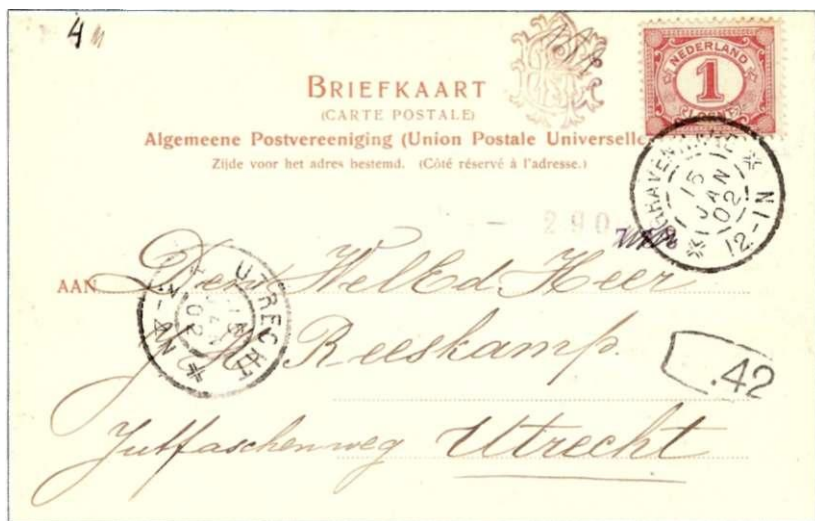 4
BRIEFKAART
(CARTE POSTALE)
Algemeene Postvereeniging (Union Postale Universelle
Zijde voor het adres bestemd. (Côté réservé à l'adresse.)
NEDERLAND
1
CENT
15 JAN 02
12-1N
290
AAN Den WelEd Heer
Reeskamp
Jutfascheweg Utrecht
UTRECHT
.42